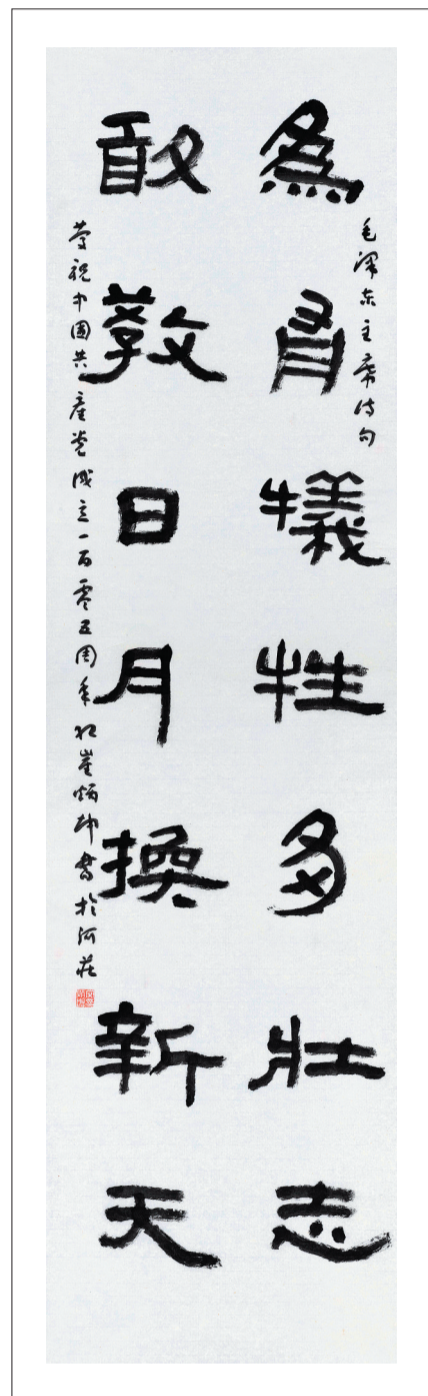 為有犧牲多壯志
毛泽东主席诗句
敢教日月換新天
庆祝中国共产党成立一百零五周年 红崖炳坤书於河庄